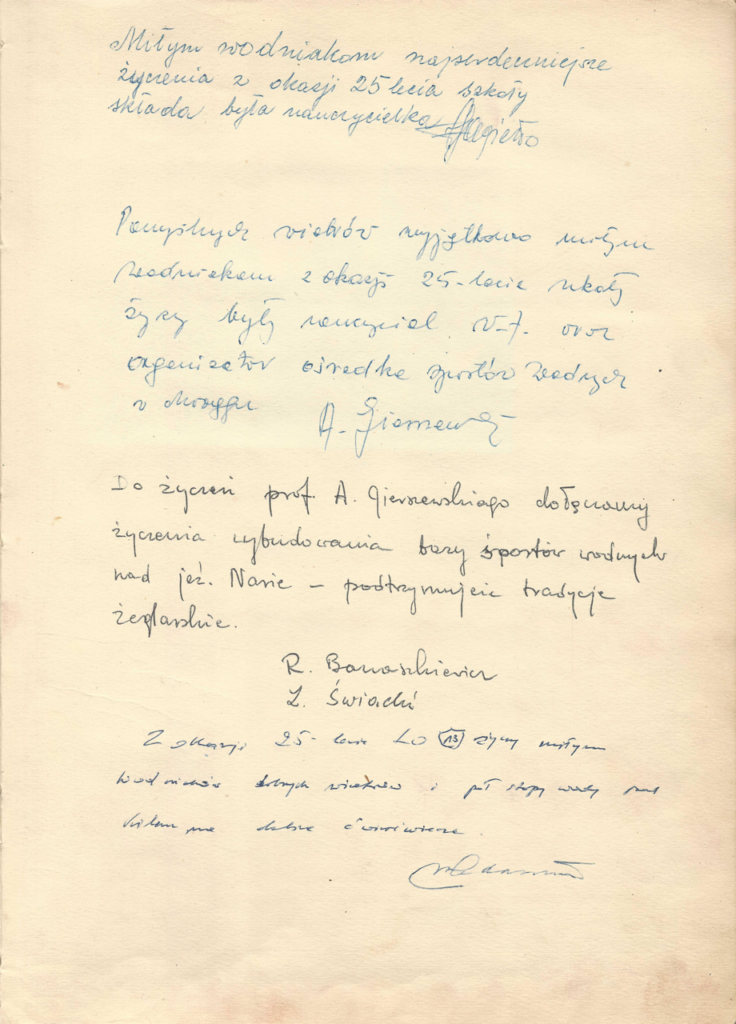 Miłym wodniakom najserdeczniejsze
życzenia z okazji 25 lecia szkoły
składa była nauczycielka Jagiełło
Pomyślnych wiatrów wyjątkowo miłym
wodniakom z okazji 25-lecia szkoły
życzy były nauczyciel W-f. oraz
organizator ośrodka sportów wodnych
w Morągu A. Gierszewski
Do życzeń prof. A. Gierszewskiego dołączamy
życzenia wybudowania bazy sportów wodnych
nad jez. Narie – podtrzymujcie tradycje
żeglarskie.
R. Banaszkiewicz
L. Świacki
Z okazji 25-lecia LO życzę miłym
wodniakom dobrych wiatrów i pół stopy wody pod
kilem na